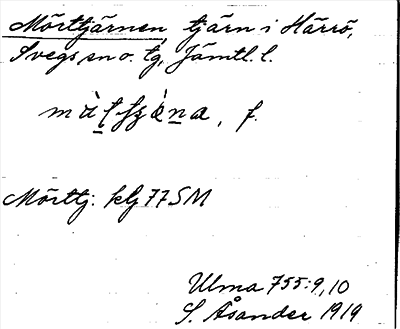 Mörttjärnen, tjärn i Härrö,
Svegs sn o. tg, Jämtl. l.
, f.
Mörttj. klj 77 SM
Ulma 755:9,10
S. Åsander 1919